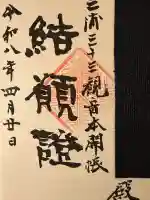 三浦三十三観音本開帳
結願證
令和八年四月廿日
殿